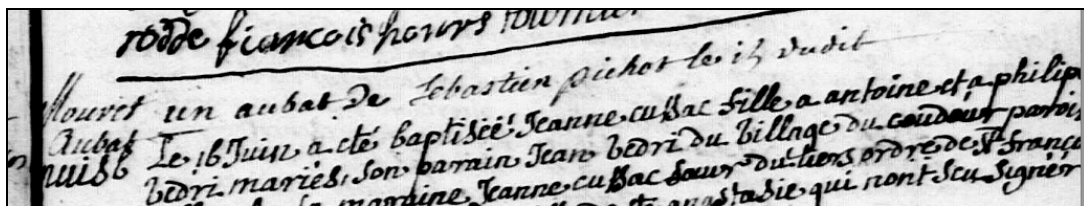 rodde francois hours tournier
Mouret un aubat de Sebastien pichot le 15 dudit
Aubat Le 16 Juin a eté baptiseé Jeanne cussac fille a antoine et a philip
bedri mariés, son parain Jean bedri du billage du coudour parois
maraine Jeanne cussac sœur du tiers ordre de st france
ste anastasie qui nont scu signér